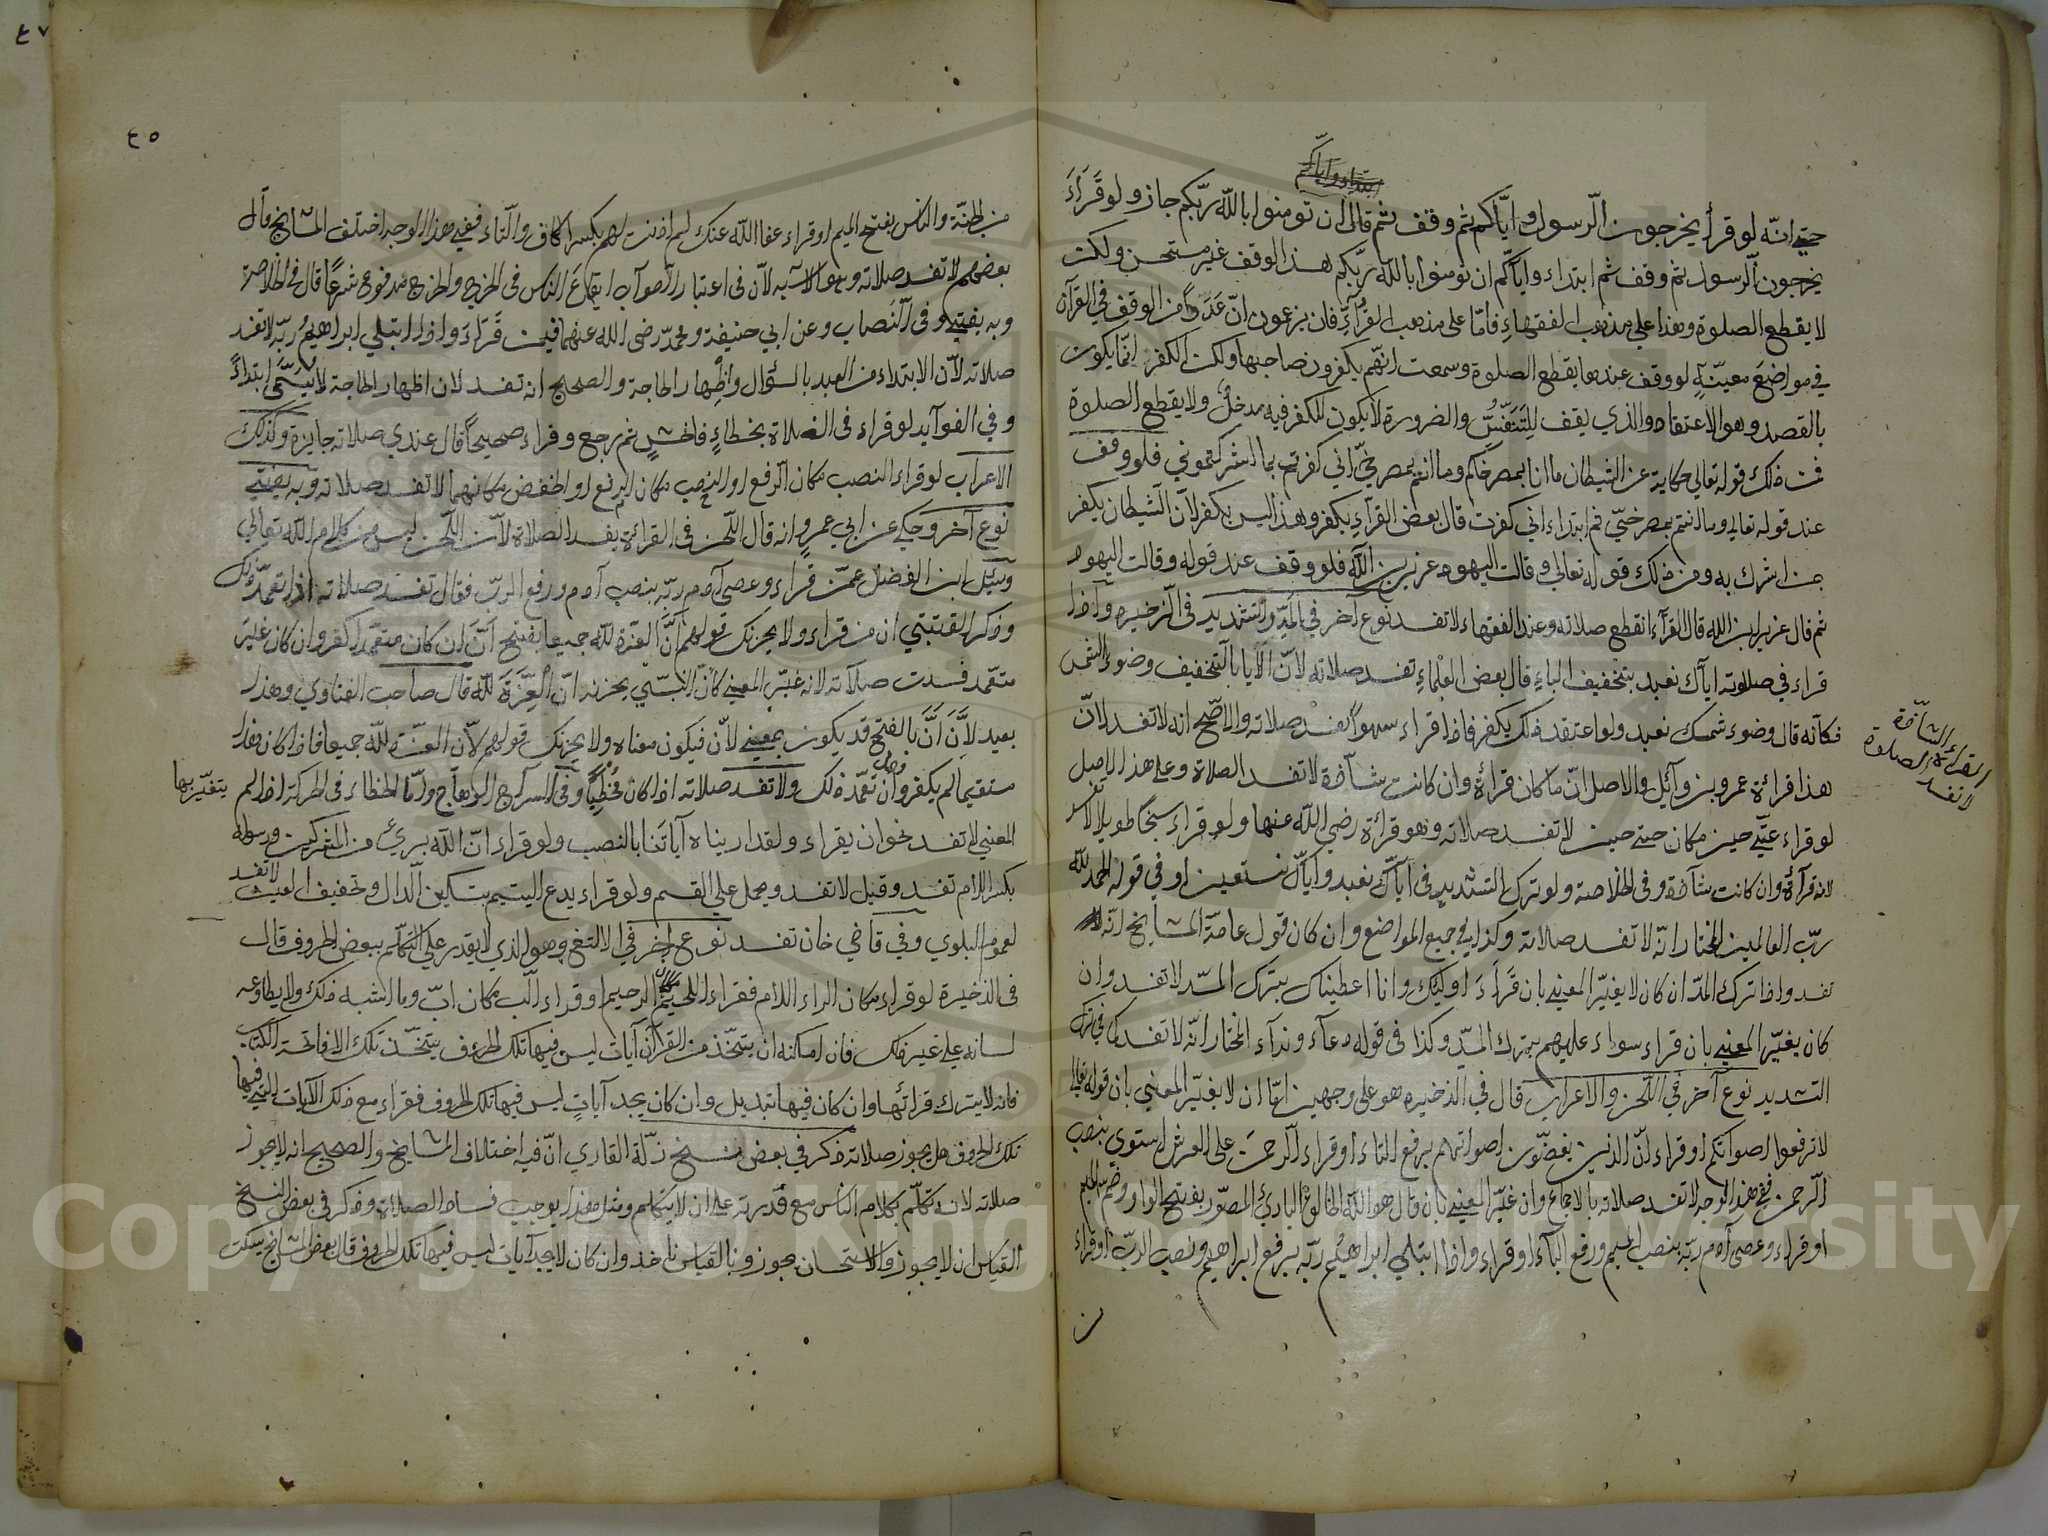 حتى انّه لو قرأ يخرجون الرّسول و ايّاكم ثم وقف ثم قال ان تومنوا بالله ربّكم جاز ولو قَرَاءَ
يخرجون الرّسول ثم وقف ثم ابتداء وايّاكم ان تومنوا بالله ربّكم هذا الوقف غير مستحسن ولكن
لا يقطع الصلوة وهذا على مذهب الفقهاءِ فامّا على مذهب القُرّاءِ فان يزعمون انّ عَدَداً من الوقف في القرآن
في مواضعَ معيّنةٍ لو وقف عندها يقطع الصلوة وسمعت انّهم يكفرون صاحبها ولكن الكفر انّما يكون
بالقصد وهو الاعتقاد والذي يقف للتَنَفّسِ والضرورة لا يكون للكفر فيه مدخلٌ ولا يقطع الصلوة
فمن ذلك قوله تعالى حكاية عن الشيطان ما انا بمصرخكم وما انتم بمصرخيّ اني كفرتم بما اشركتموني فلو وقف
عند قوله تعالى وما انتم بمصرخيّ ثم ابتداء اني كفرت قال بعض القراءِ يكفر وهذا ليس بكفر لانّ الشيطان يكفر
بمن اشرك به ومن ذلك قوله تعالى وقالت اليهود عزير بن الله فلو وقف عند قوله وقالت اليهود
ثم قال عزير ابن الله قال القرآء انقطع صلاته وعند الفقهاء لا تفسد نوع آخر في المدّ والتشديد في الذخيره واذا
قراء في صلوته اياك نعبد بتخفيف الياءِ قال بعض العلماءِ تفسد صلاته لانّ الايا بالتخفيف وضوء الشمس
فكانّه قال وضوء شمسك نعبد ولو اعتقد ذلك يكفر فاذا قراء سهواً تفسد صلاته والاصّح انه لا تفسد لانّ
هذا قرائة عمرو بن وآئل والاصل انّ ما كان قرأة وان كانت شآذة لا تفسد الصلاة وعلى هذا الاصل
لو قراء عتّى حين مكان حتى حين لا تفسد صلاته وهو قرائة رضي الله عنها ولو قراء سبحًا طويلا لا تفسد
لانه قرآئة وان كانت شاذة وفى الخلاصة ولو ترك التشديد في ايّاك نعبد وايّاك نستعين او في قوله الحمد لله
ربّ العالمين المختار انّه لا تفسد صلاته وكذا في جميع المواضع وان كان قول عامّة المشايخ انّه
تفسد واذا ترك المدّ ان كان لا يغيّر المعنى بان قَرَأَ اوليك وانا اعطيناك بترك المدّ لا تفسد وان
كان يغيّر المعنى بان قراء سواء عليهم بترك المدّ وكذا في قوله دعآء وندآء المختار انّه لا تفسد كما في ترك
التشديد نوع آخر في اللّحن والاعراب قال في الذخيره هو على وجهين امّا ان لا يغيّر المعنى بان قوله تعالى
لا ترفعوا اصواتكم او قراء انّ الذين يغضّون اصواتهم برفع التاء او قراء الرّحمن على العرش استوى بنصب
الرّحمن ففي هذا الوجه لا تفسد صلاته بالاجماع وان غيّر المعنى بان قال هو الله الخالق البارئ المصوّر بفتح الواو وضم الميم
او قراء وعصى آدم ربّه بنصب الميم ورفع الباء او قراء واذا ابتلى ابراهيم ربّه برفع ابراهيم ونصب الربّ او قراء
القراءة الشآذّة
لا تفسد الصلوة
٤٥
من الجنّة والناس بفتح الميم او قراء عفا الله عنك لم اذنت لهم بكسر الكاف والتاء ففي هذا الوجه اختلف المشايخ قال
بعضهم لا تفسد صلاته وهو الاشبه لانّ في اعتبار الصواب ايقاعَ الناس في الحرج والحرج مدفوع شرعًا قال في الخلاصة
وبه يفتى وفى النّصاب وعن ابي حنيفة ومحمّد رضى الله عنهما فيمن قَرَاءَ واذا ابتلى ابراهيم ربّه لا تفسد
صلاته لانّ الابتداء من العبد بالسؤال واظهار الحاجة والصحيح انه تفسد لان اظهار الحاجة لا يسمّى ابتداءً
وفي الفوآيد لو قراء في الصلاة بخطاءٍ فاحشٍ ثم رجع وقراء صحيحاً قال عندي صلاته جايزة وكذلك
الاعراب لو قراء النصب مكان الرفع او النصب مكان الرفع او الخفض مكانهما لا تفسد صلاته وبه يفتى
نوع آخر وحكى عن ابي عمرو انه قال اللّحن في القرائة يفسد الصلاة لانّ اللّحن ليس من كلام الله تعالى
وسئل ابن الفضل عمّن قراء وعصى آدم ربّه بنصب آدم ورفع الربّ فقال تفسد صلاته اذا تعمّد ذلك
وذكر القتبي ان من قراء ولا يحزنك قولهم انَّ العزة لله جميعا بفتح انّ ان كان متعمّدا كفر وان كان غير
متعمّد فسدت صلاته لانه غيّر المعنى كانّ النبّي يحزنه انّ العِزَّةَ لله قال صاحب الفتاوي وهذا
بعيد لانَّ اَنَّ بالفتح قد يكون بمعنى لانّ فيكون معناه ولا يحزنك قولهم لانّ العزّة لله جميعا فاذا كان هذا
مستقيما لم يكفر وان تعمّد ذلك ولا تفسد صلاته اذا كان مُخْطِئًا وفى السراج الوهاج وامّا الخطاء فى الحركة اذا لم
يتغيّر بها
المعنى لا تفسد نحو ان يقراء ولقد اريناه آياتنا بالنصب ولو قراء انّ الله بريء من المشركين ورسوله
بكسر اللام تفسد وقيل لا تفسد ويحمل على القسم ولو قراء يدع اليتيم بتسكين الدال وتخفيف العين لا تفسد
لعموم البلوي وفى قاضي خان تفسد نوع آخر في الالثغ وهو الذي لا يقدر على التكلّم ببعض الحروف قال
في الذخيرة لو قراء مكان الراء اللام فقراء اللحيم مكان الرحيم او قراء الّب مكان ربّ وما اشبه ذلك ولا يطاوعه
لسانه على غير ذلك فان امكنه ان يتّخذ من القرآن آيات ليس فيها تلك الحروف يتّخذ تلك الا فاتحة الكتاب
فانه لا يترك قرائتها وان كان فيها تبديل وان كان يجد آياتٍ ليس فيها تلك الحروف فقراء مع ذلك الآيات التي فيها
تلك الحروف هل يجوز صلاته ذكر في بعض نسخ زلّة القاري انّ فيه اختلاف المشايخ والصحيح انه لا يجوز
صلاته لانه تكلّم بكلام الناس مع قدرته على ان لا يتكلم ومثل هذا يوجب فساد الصلاة وذكر في بعض النسخ
القياس ان لا يجوز والاستحسان يجوز وبالقياس ناخذ وان كان لا يجد آيات ليس فيها تلك الحروف قال بعض المشايخ يسكت
Copyright © King Saud University